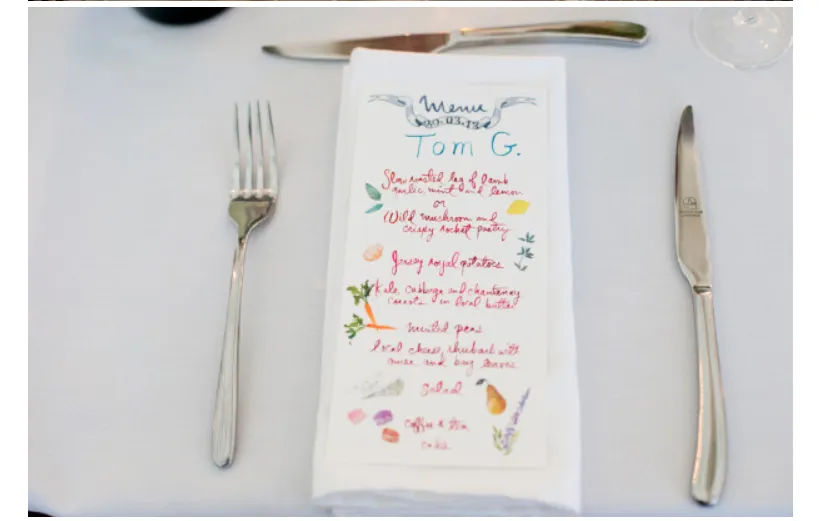 Menu
30.03.13
Tom G.
Slow roasted leg of lamb
garlic, mint and lemon
or
Wild mushroom and
crispy rocket pastry
Jersey royal potatoes
Kale, cabbage and chantenay
carrots in local butter
minted peas
local cheese, rhubarb with
anise and bay leaves
Salad
coffee & tea
cake